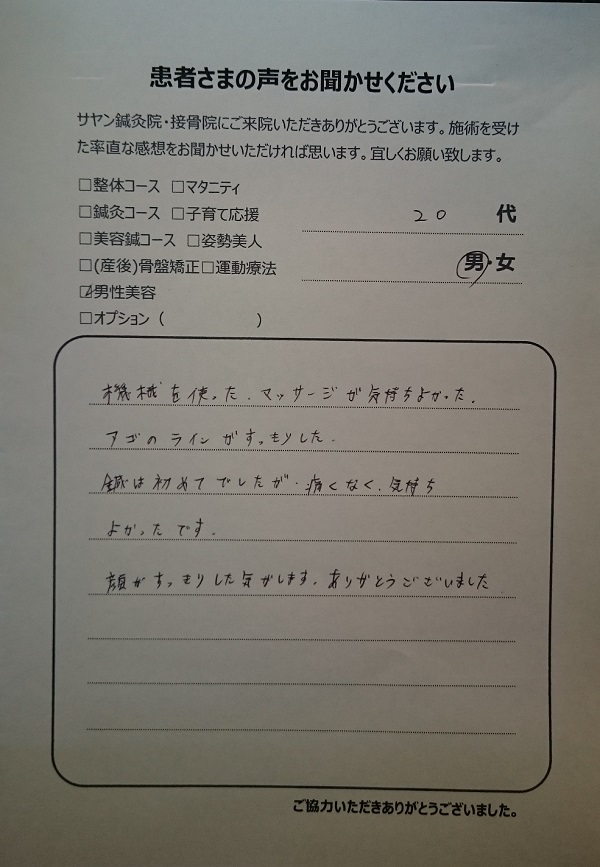 患者さまの声をお聞かせください
サヤン鍼灸院・接骨院にご来院いただきありがとうございます。施術を受け
た率直な感想をお聞かせいただければ思います。宜しくお願い致します。
□整体コース □マタニティ
□鍼灸コース □子育て応援
20 代
□美容鍼コース □姿勢美人
男・女
□(産後)骨盤矯正□運動療法
☑男性美容
□オプション（ ）
機械を使った、マッサージが気持ちよかった。
アゴのラインがすっきりした。
鍼は初めてでしたが、痛くなく、気持ち
よかったです。
顔がすっきりした気がします。ありがとうございました
ご協力いただきありがとうございました。